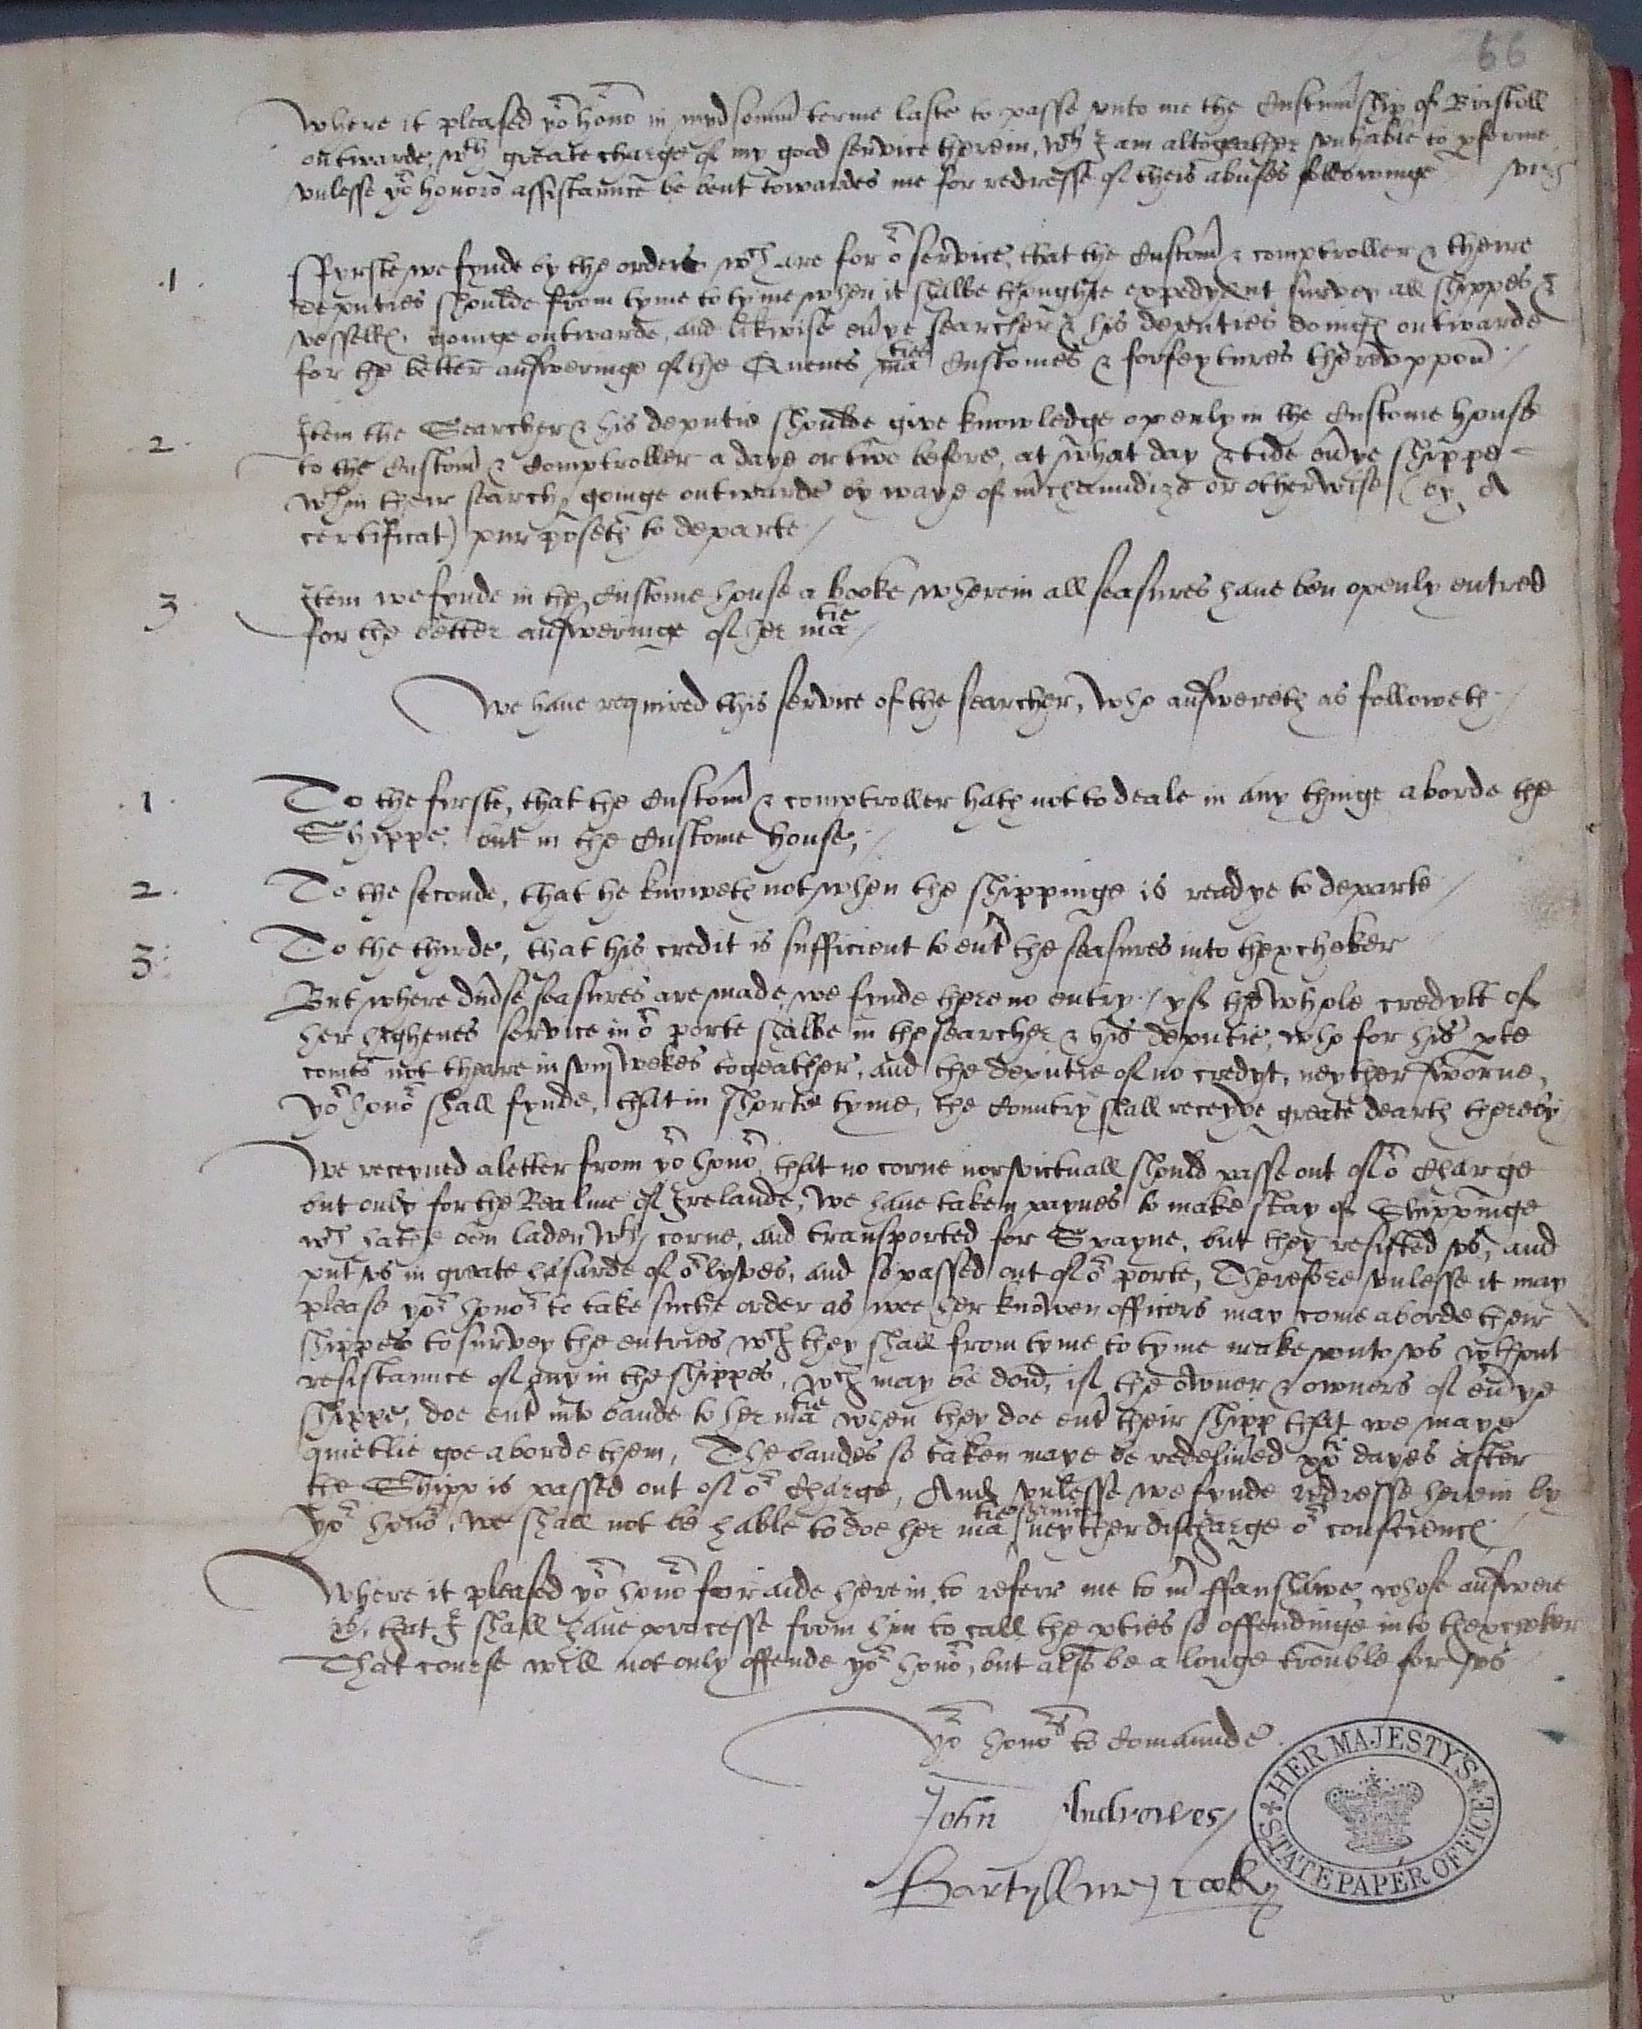 66
Where it pleased yor honor in mydsomer terme laste to passe unto me the Customship of Bristoll
outwarde, wth greate charge of my good service therein, wch I am altogeather unhable to pforme
unlesse yor honors assistaunce be bent towardes me for redresse of theis abuses followinge vizt
.1. Fyrste we fynde by the orders wch are for or service, that the Custom & comptroller & theire
deputies shoulde from tyme to tyme when it shalbe thoughte expedyent survey all shippes &
vessells going outwarde, and likwise evye searcher & his deputies doings outwarde
for the better answeringe of the Quenes matie Customes & forfeytures thereuppon
.2. Item the Searcher & his deputie shoulde give knowledge openly in the Custome house
to the Custom & Comptroller a daye or two before, at what day & tide evye shippe
wthin their search, goinge outwarde by waye of mchaundize or otherwise (by a
certificat) purposeth to departe
3 Item we fynde in the Custome house a booke wherein all seasures have ben openly entred
for the better answeringe of her matie
We have required this service of the searcher, who answereth as followeth
.1. To the fyrste, that the Custom & comptroller hath not to deale in any thinge aborde the
Shippe, but in the Custome house,
2. To the seconde, that he knoweth not when the shippinge is readye to departe
3: To the thirde, that his credit is sufficient to ent the seasures into thexcheker
But where divse seasures are made, we fynde here no entry. yf the whole credytt of
her highenes service in or porte shalbe in the searcher & his deputie, who for his pte
comte not theare in viij wekes togeather, and the deputie of no credyt, neyther sworne,
yor honor shall fynde, that in shorte tyme, the Country shall receyve greate dearth thereby
We receyued a letter from yor honor, that no corne nor victuall should passe out of or charge
but only for the Realme of Irelande, we have taken paynes to make stay of Shippinge
wch hathe ben laden wth corne, and transported for Spayne, but they resisted us, and
put us in greate hasarde of or lyves, and so passed out of or porte, Therefore unlesse it may
please yor honor to take suche order as wee her knowen officers may come aborde their
shippes to survey the entries wch they shall from tyme to tyme make unto us wthout
resistaunce of any in the shippes, wch may be don, if the owner & owners of evye
shippe, doe ent into bande to her matie when they doe ent their shipp that we maye
quietlie goe aborde them, The bandes so taken maye be redelived xxti dayes after
the Shipp is passed out of or charge, And unlesse we fynde redresse herein by
yor honor, we shall not be hable to doe her matie service neyther discharge or conscience
Where it pleased yor honor for aide herein to referr me to mr ffanshawe, whose answere
is, that I shall have processe from him to call the pties so offendinge into thexcheker
That course will not only offende yor honor, but also be a longe trouble for us
Yor honors to Comaunde.
John Androwes
Bartyllmew Cook
HER MAJESTY'S STATE PAPER OFFICE